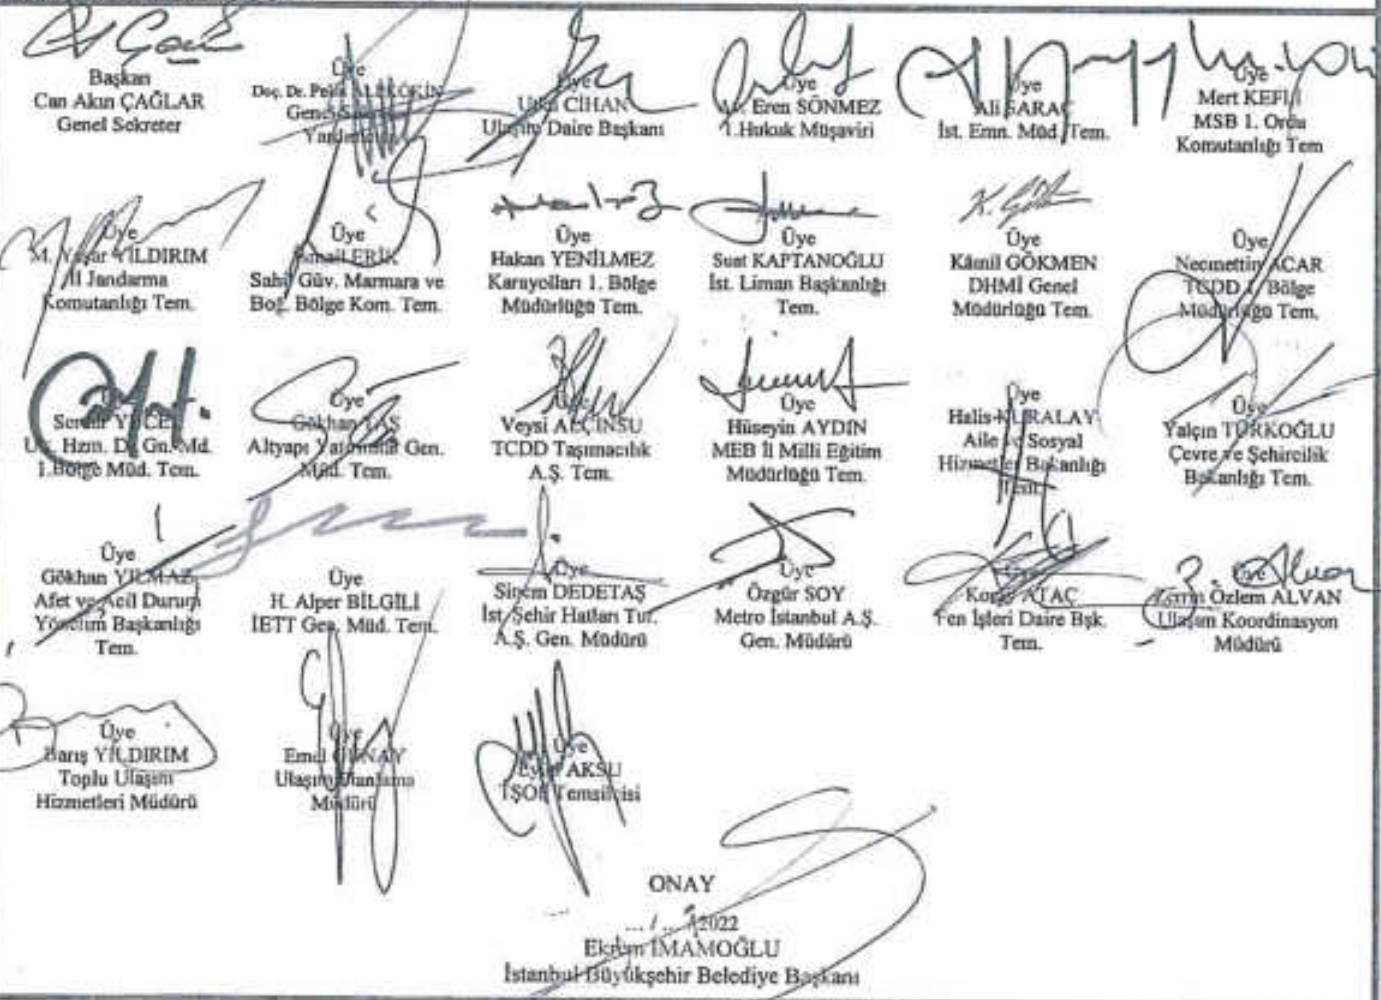 Başkan
Can Akın ÇAĞLAR
Genel Sekreter
Üye
Doç. Dr. Pelin ALPKÖKİN
Genel
Üye
CİHAN
Ulaşım Daire Başkanı
Üye
Av. Eren SÖNMEZ
1.Hukuk Müşaviri
Üye
Ali SARAÇ
İst. Emn. Müd. Tem.
Üye
Mert KEFLİ
MSB 1. Ordu
Komutanlığı Tem
Üye
M. Yaşar YILDIRIM
İl Jandarma
Komutanlığı Tem.
Üye
İsmail ERİK
Sahil Güv. Marmara ve
Boğ. Bölge Kom. Tem.
Üye
Hakan YENİLMEZ
Karayolları 1. Bölge
Müdürlüğü Tem.
Üye
Suat KAPTANOĞLU
İst. Liman Başkanlığı
Tem.
Üye
Kâmil GÖKMEN
DHMİ Genel
Müdürlüğü Tem.
Üye
Necmettin ACAR
TCDD 1. Bölge
Müdürlüğü Tem.
Serdar YÜCEL
Hzm. Dz. Gn. Md.
1.Bölge Müd. Tem.
Üye
Gökhan TAŞ
Altyapı Yatırımlar Gen.
Müd. Tem.
Veysi ALÇINSU
TCDD Taşımacılık
A.Ş. Tem.
Üye
Hüseyin AYDIN
MEB İl Milli Eğitim
Müdürlüğü Tem.
Üye
Halis KURALAY
Aile ve Sosyal
Hizmetler Bakanlığı
Tem.
Üye
Yalçın TÜRKOĞLU
Çevre ve Şehircilik
Bakanlığı Tem.
Üye
Gökhan YILMAZ
Afet ve Acil Durum
Yönetim Başkanlığı
Tem.
Üye
H. Alper BİLGİLİ
İETT Gen. Müd. Tem.
Üye
Sinem DEDETAŞ
İst. Şehir Hatları Tur.
A.Ş. Gen. Müdürü
Üye
Özgür SOY
Metro İstanbul A.Ş.
Gen. Müdürü
ATAÇ
Fen İşleri Daire Bşk.
Tem.
Üye
Özlem ALVAN
Ulaşım Koordinasyon
Müdürü
Üye
Barış YILDIRIM
Toplu Ulaşım
Hizmetleri Müdürü
Üye
Ulaşım Planlama
Müdürü
Üye
AKSU
TŞOF Temsilcisi
ONAY
... / ... /2022
Ekrem İMAMOĞLU
İstanbul Büyükşehir Belediye Başkanı